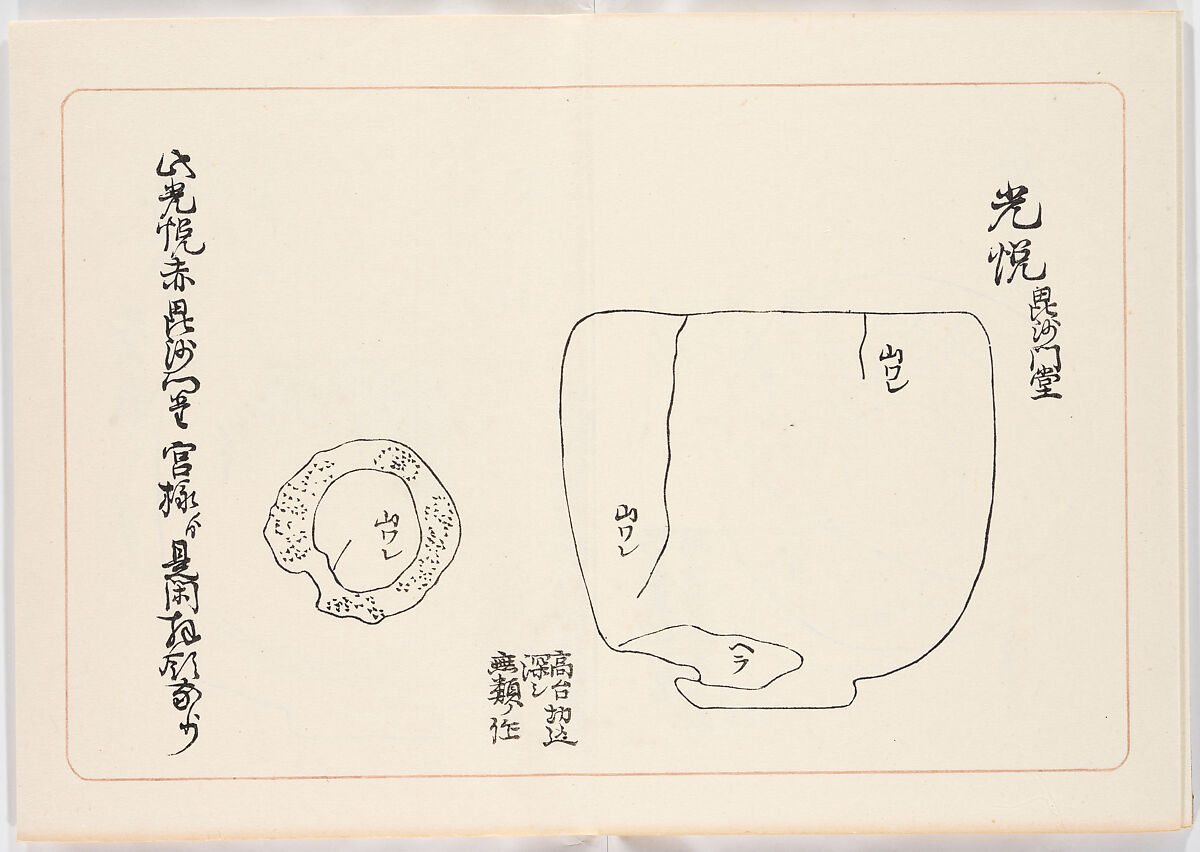 光悦
毘沙門堂
山ワレ
山ワレ
ヘラ
高台切込
深シ
無類ノ作
山ワレ
此光悦赤毘沙門堂宮様より是閑拝領